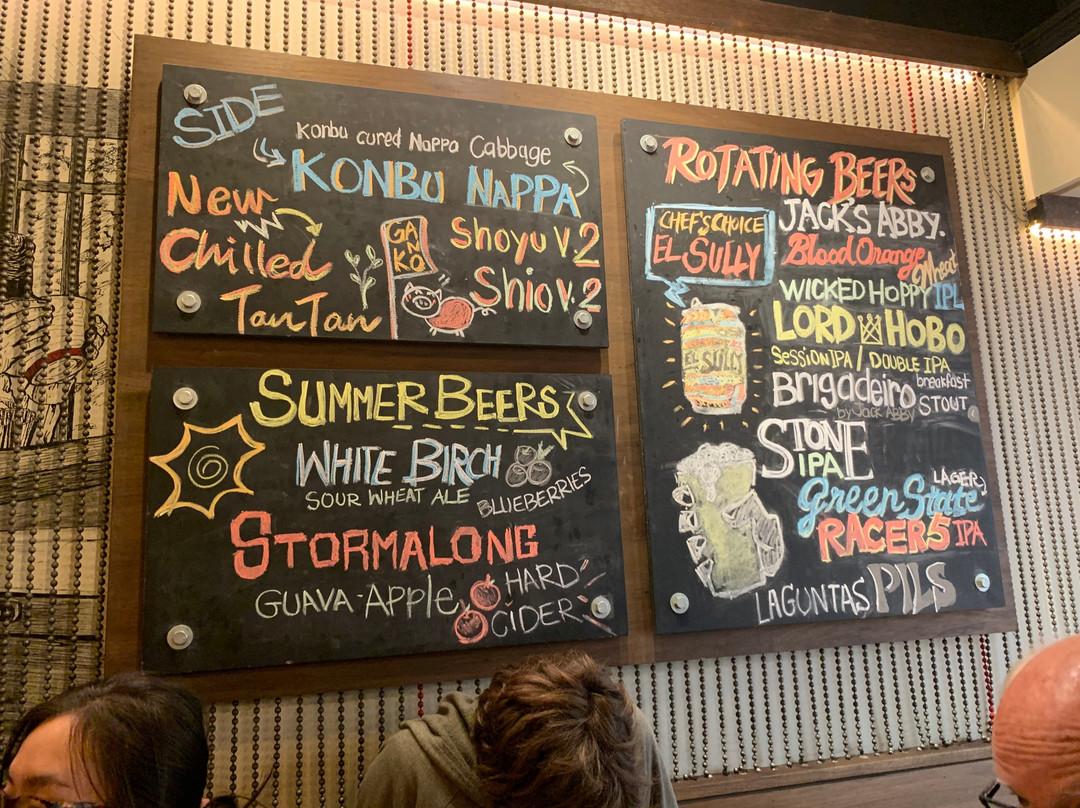 SIDE
Konbu cured Nappa Cabbage
KONBU NAPPA
New
Chilled
TanTan
GA
N
KO
Shoyu V.2
Shio V.2
SUMMER BEERS
WHITE BIRCH
SOUR WHEAT ALE
BLUEBERRIES
STORMALONG
GUAVA-APPle
HARD
CIDER
ROTATING BEERS
CHEF'S CHOICE
EL SULLY
EL SULLY
JACK'S ABBY.
Blood Orange
Wheat
WICKED HOPPY IPL
LORD HOBO
SESSION IPA / DOUBLE IPA
Brigadeiro breakfast
STOUT
by JACK ABBY
STONE
IPA
Green State LAGER
RACER 5 IPA
LAGUNTAS PILS